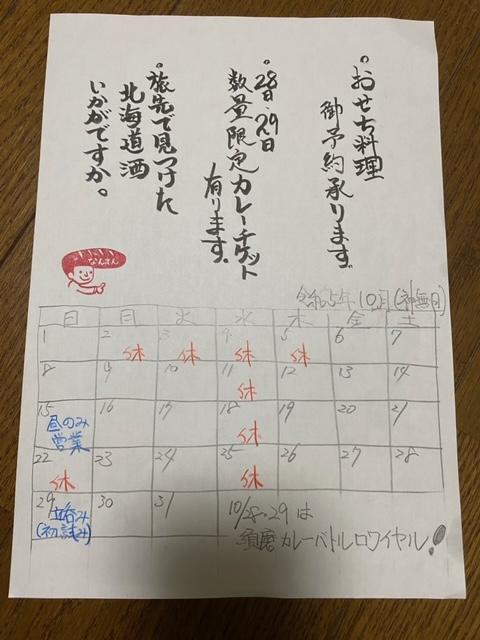 ・おせち料理
御予約承ります。
・28日・29日
数量限定カレーチケット
有ります。
・旅先で見つけた
北海道酒
いかがですか。
令和5年10月(神無月)
日 月 火 水 木 金 土
1 2 休 3 休 4 休 5 休 6 7
8 9 10 11 休 12 13 14
15 昼のみ営業 16 17 18 休 19 20 21
22 休 23 24 25 休 26 27 28
29 立呑み(初試み) 30 31
10/28・29は
須磨カレーバトルロワイヤル!